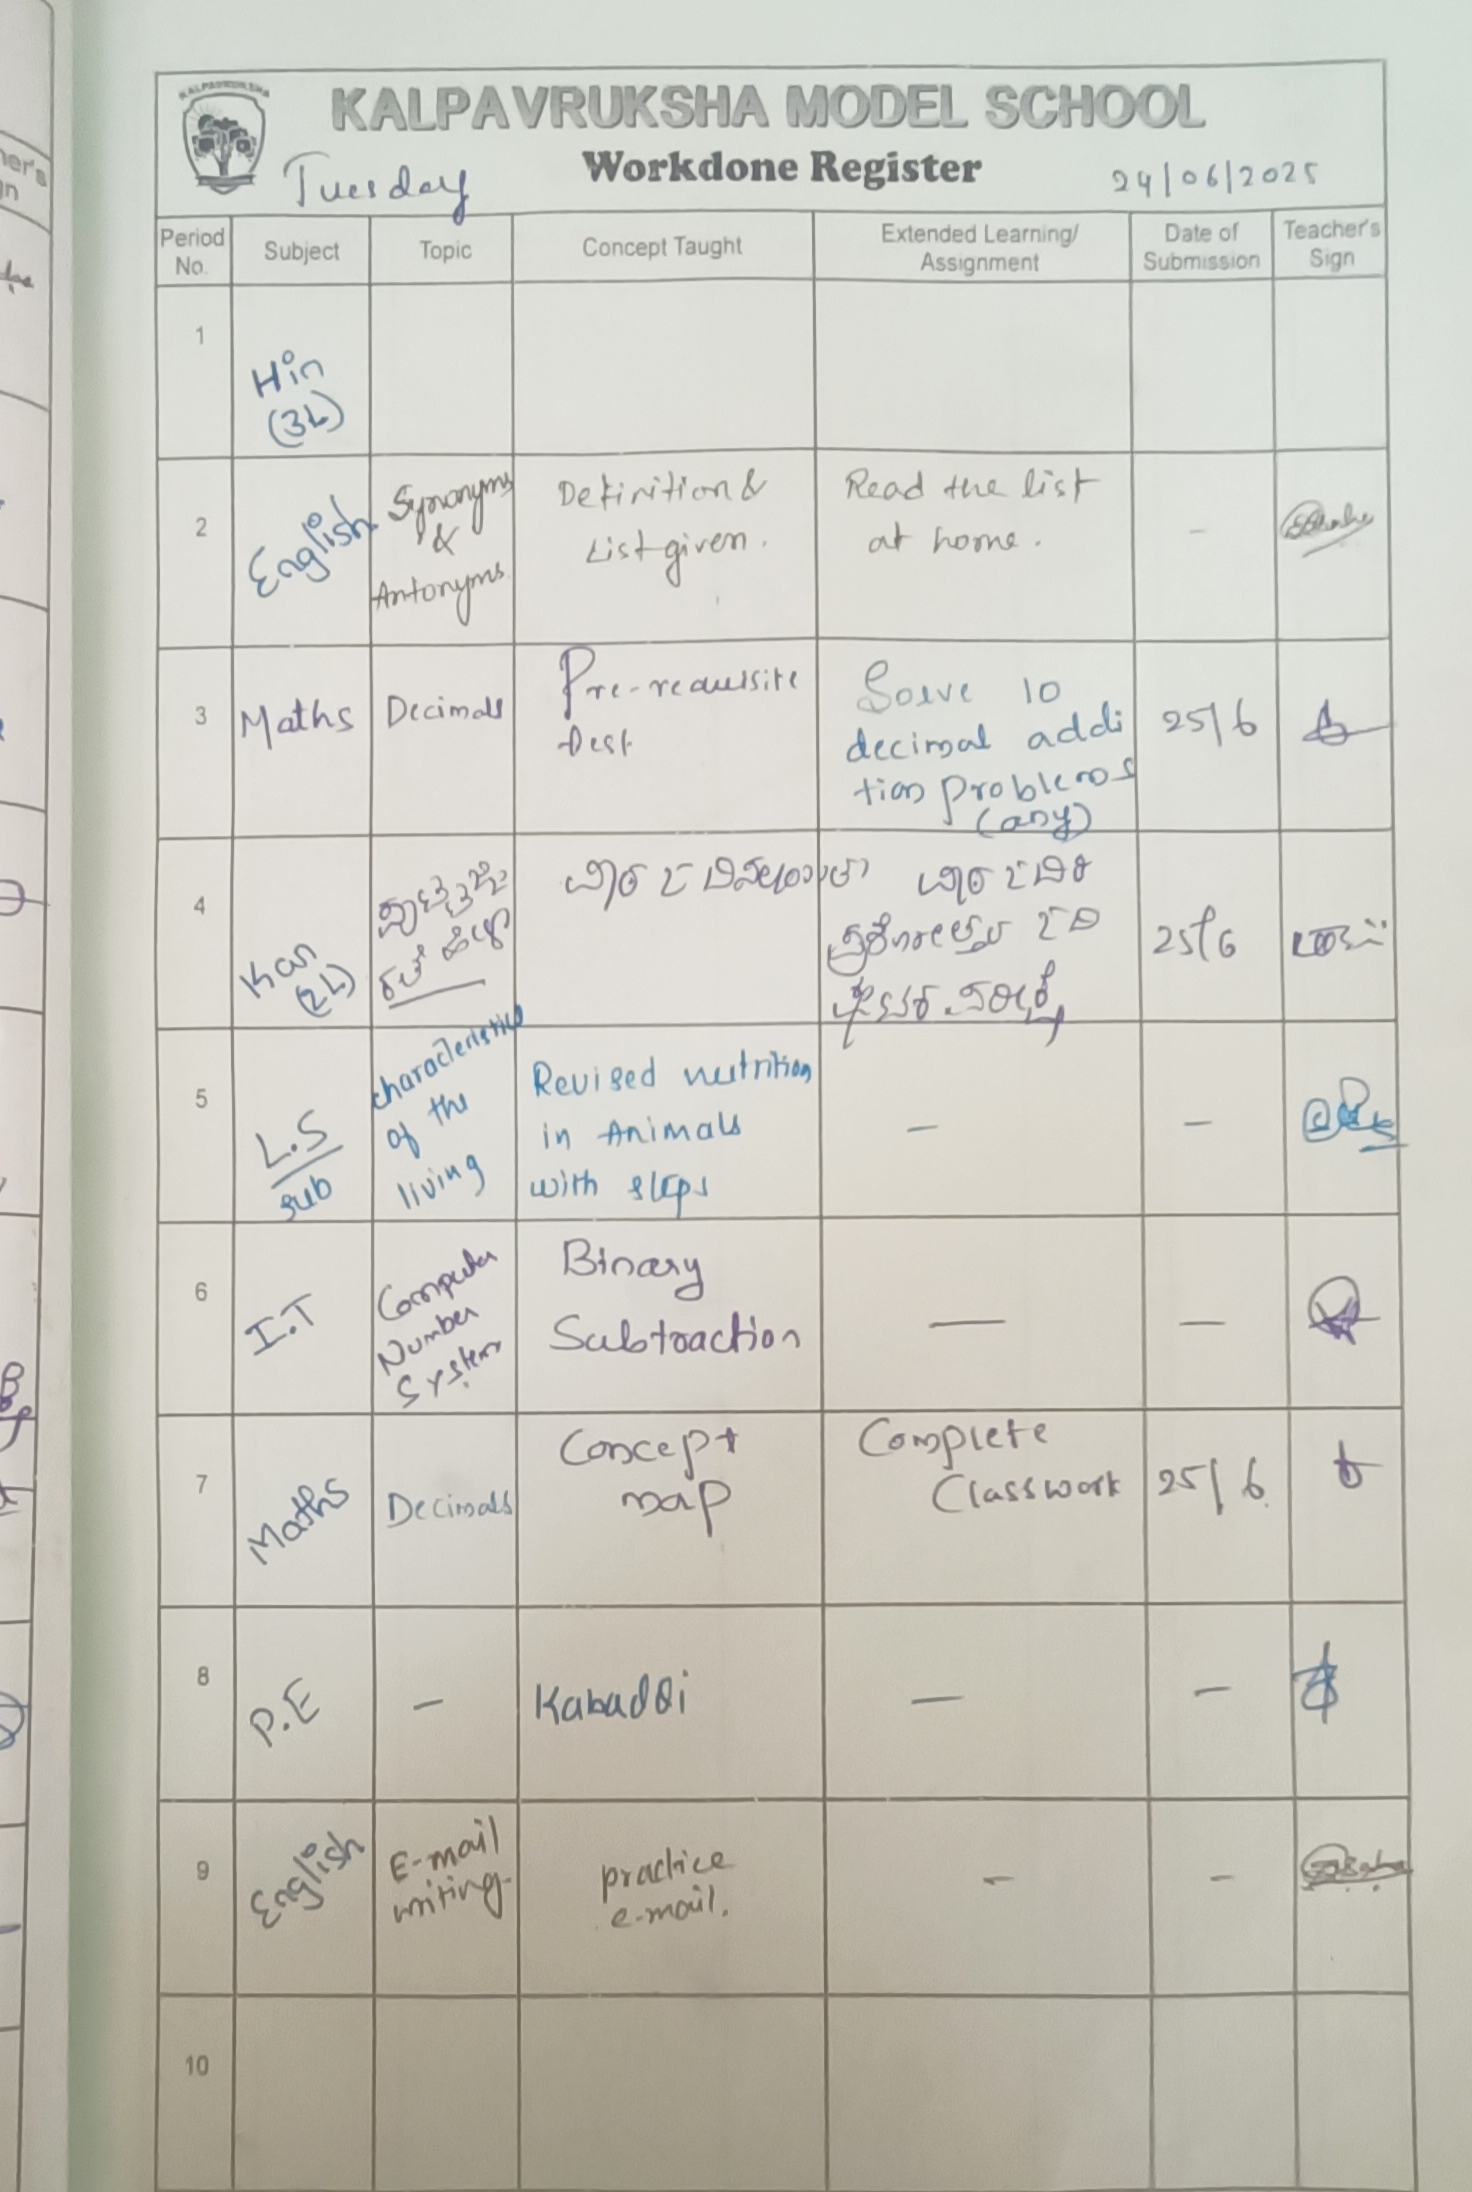 KALPAVRUKSHA
KALPAVRUKSHA MODEL SCHOOL
Workdone Register
Tuesday
24/06/2025
Period No.
Subject
Topic
Concept Taught
Extended Learning/
Assignment
Date of
Submission
Teacher's
Sign
1
Hin
(3L)
2
English
Synonyms
&
Antonyms.
Definition &
List given.
Read the list
at home.
-
3
Maths
Decimals
Pre-requisite
test
Solve 10
decimal addi
tion problems
(any)
25/6
4
Kan
(2L)
25/6
5
L.S
sub
characteristics
of the
living
Revised nutrition
in Animals
with steps
-
-
6
I.T
Computer
Number
System
Binary
Subtraction
-
-
7
Maths
Decimals
Concept
map
Complete
Classwork
25/6.
8
P.E
-
Kabaddi
-
-
9
English
E-mail
writing.
practice
e-mail.
-
-
10